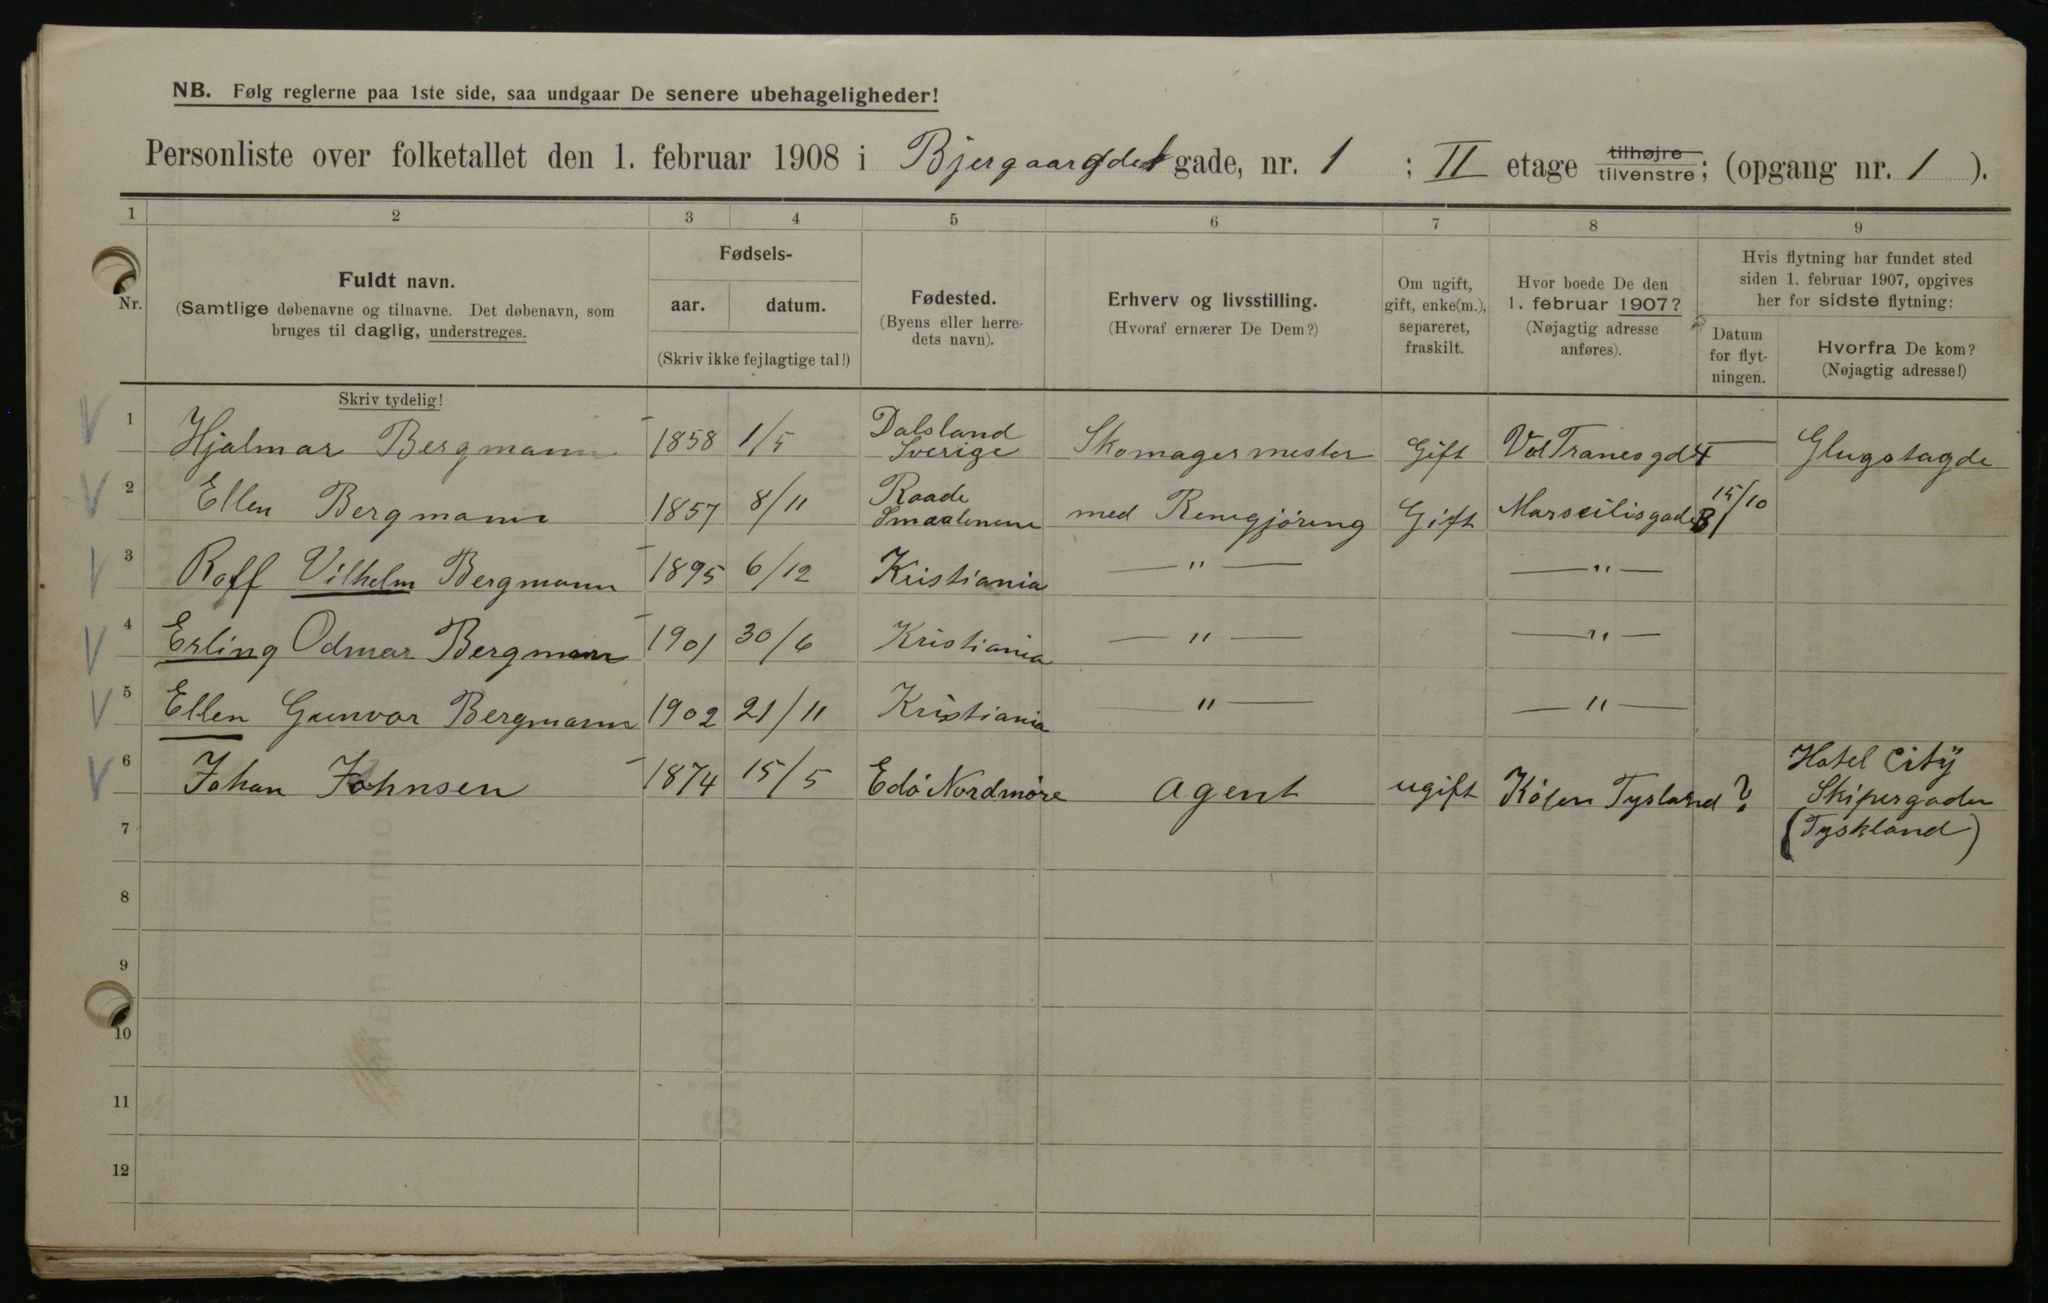 NB. Følg reglerne paa 1ste side, saa undgaar De senere ubehageligheder!
Personliste over folketallet den 1. februar 1908 i Bjergaards gade, nr. 1 ; II etage tilhøjre tilvenstre; (opgang nr. 1 ).
1 2 3 4 5 6 7 8 9
Nr. Fuldt navn. (Samtlige døbenavne og tilnavne. Det døbenavn, som bruges til daglig, understreges.
Fødsels- aar. datum. (Skriv ikke fejlagtige tal!)
Fødested. (Byens eller herredets navn).
Erhverv og livsstilling. (Hvoraf ernærer De Dem?)
Om ugift, gift, enke(m.), separeret, fraskilt.
Hvor boede De den 1. februar 1907? (Nøjagtig adresse anføres).
Hvis flytning har fundet sted siden 1. februar 1907, opgives her for sidste flytning:
Datum for flytningen.
Hvorfra De kom? (Nøjagtig adresse!)
Skriv tydelig!
1 Hjalmar Bergmann 1858 1/5 Dalsland Sverige Skomagermester Gift Glugstagde
2 Ellen Bergmann 1857 8/11 Raade Smaalenene med Renegjøring Gift Marseilisgade 8 15/10
3 Rolf Vilhelm Bergmann 1895 6/12 Kristiania — " — — " —
4 Erling Odmar Bergmann 1901 30/6 Kristiania — " — — " —
5 Ellen Gunvor Bergmann 1902 21/11 Kristiania — " — — " —
6 Johan Johnsen 1874 15/5 Edø Nordmøre Agent ugift Køln Tysland ? Hotel City Skipergaden (Tyskland)
7
8
9
10
11
12